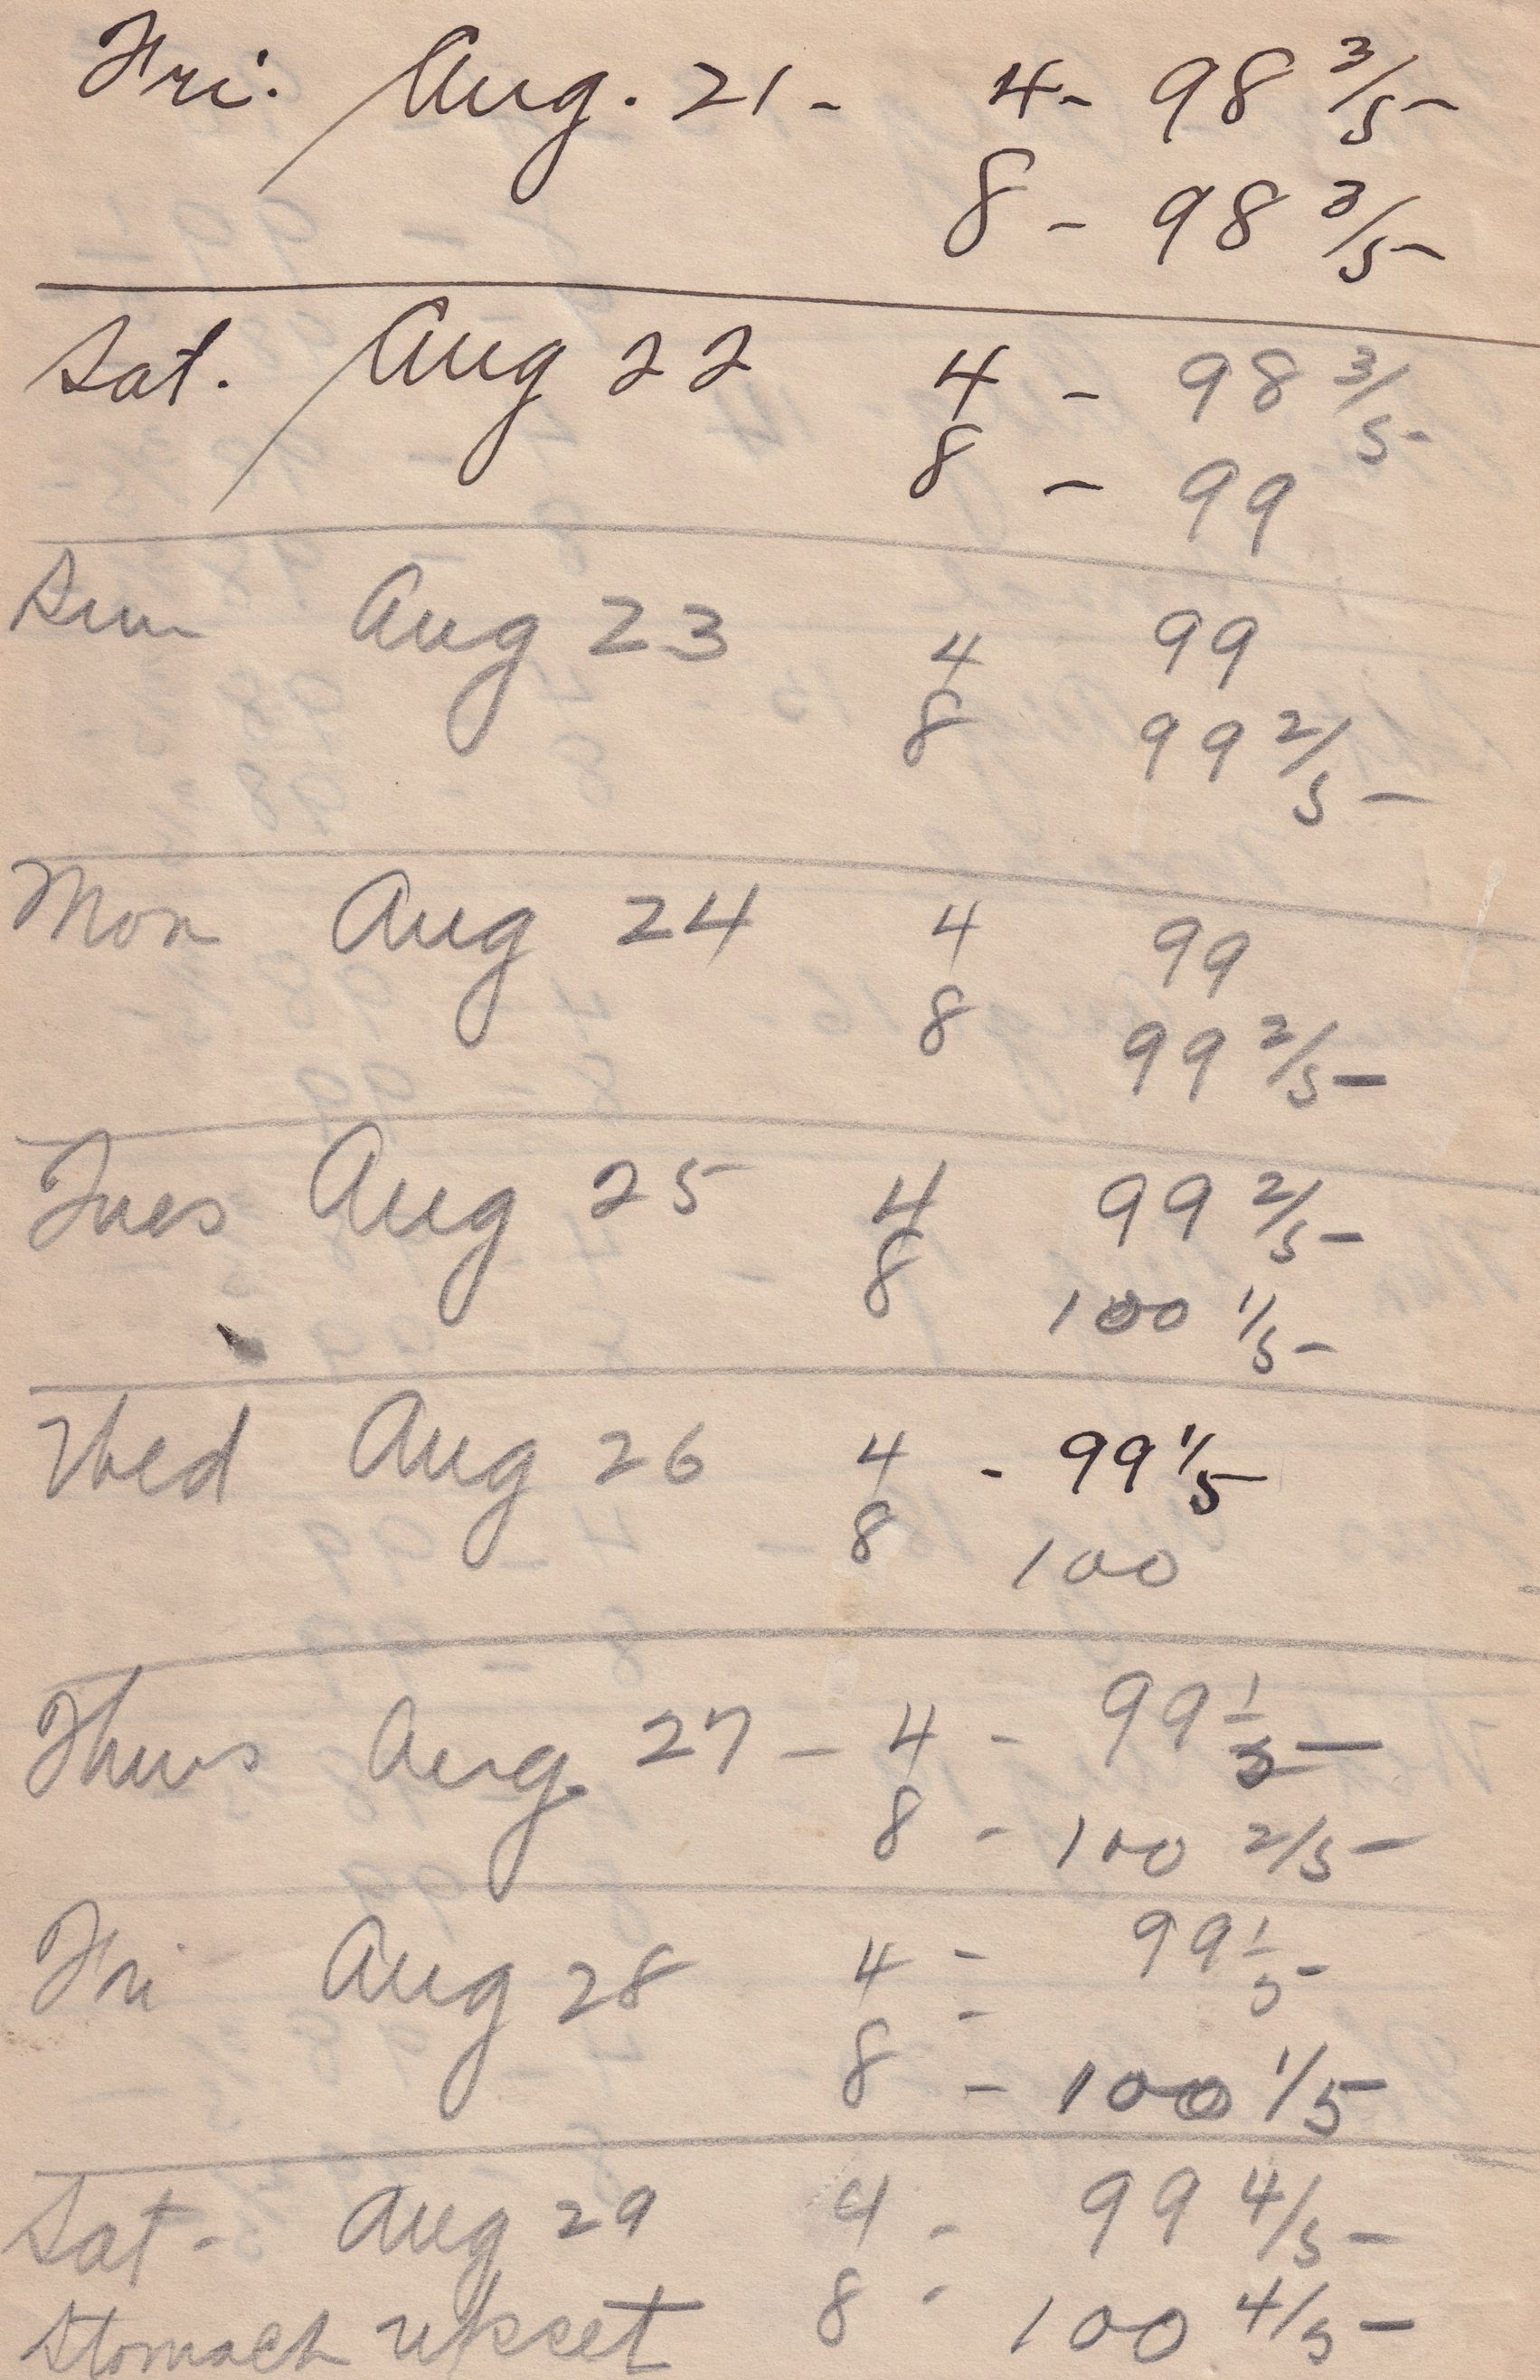 Fri. Aug. 21 - 4 - 98 3/5
8 - 98 3/5
Sat. Aug 22 4 - 98 3/5
8 - 99
Sun Aug 23 4 99
8 99 2/5
Mon Aug 24 4 99
8 99 2/5
Tues Aug 25 4 99 2/5
8 100 1/5
Wed Aug 26 4 - 99 1/5
8 100
Thurs Aug. 27 - 4 - 99 1/5
8 - 100 2/5
Fri Aug 28 4 - 99 1/5
8 - 100 1/5
Sat - Aug 29 4 - 99 4/5
Stomach upset 8 - 100 4/5